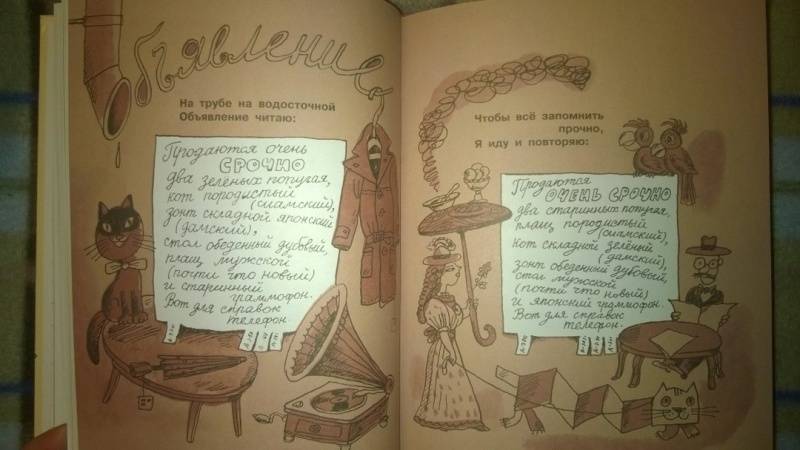 Объявление
На трубе на водосточной
Объявление читаю:
Продаются очень
СРОЧНО
два зелёных попугая,
кот породистый
(сиамский),
зонт складной японский
(дамский),
стол обеденный дубовый,
плащ мужской
(почти что новый)
и старинный
граммофон.
Вот для справок
телефон.
Чтобы всё запомнить
прочно,
Я иду и повторяю:
Продаются
ОЧЕНЬ СРОЧНО
два старинных попугая,
плащ породистый
(сиамский),
Кот складной зелёный
(дамский),
зонт обеденный дубовый,
стол мужской
(почти что новый)
и японский граммофон.
Вот для справок
телефон.